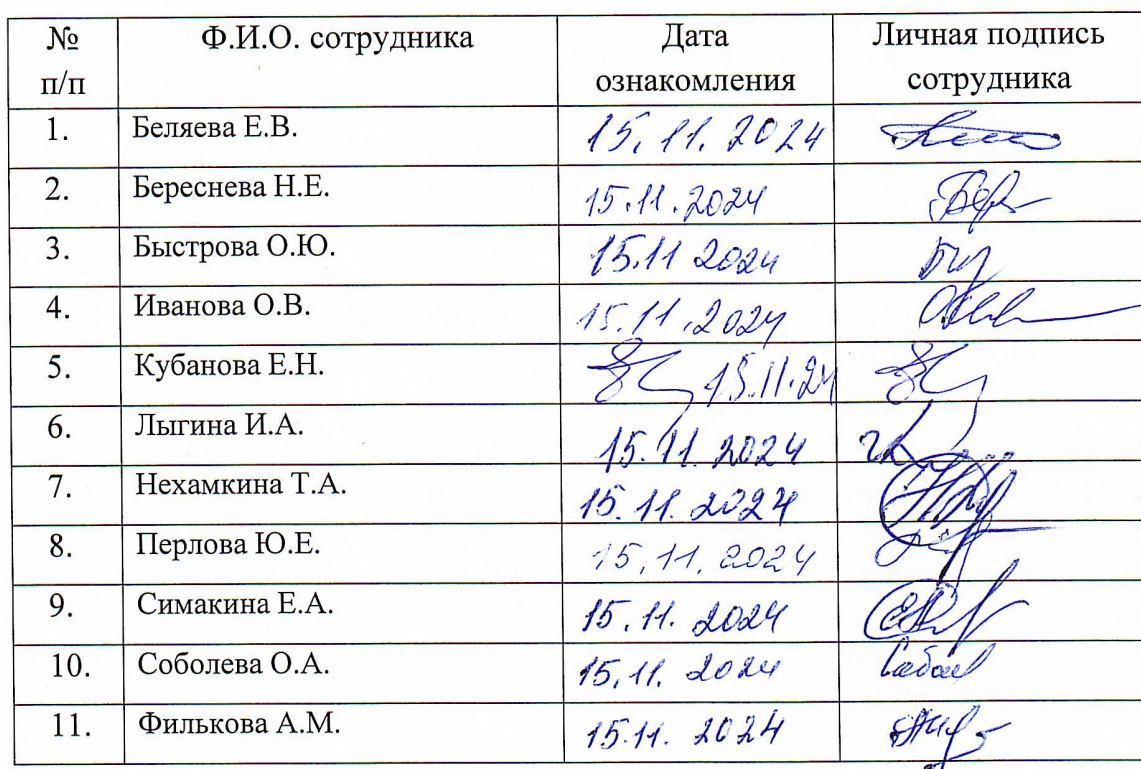 № Ф.И.О. сотрудника Дата Личная подпись
п/п ознакомления сотрудника
1. Беляева Е.В. 15.11.2024
2. Береснева Н.Е. 15.11.2024
3. Быстрова О.Ю. 15.11 2024
4. Иванова О.В. 15.11.2024
5. Кубанова Е.Н. 15.11.24
6. Лыгина И.А. 15.11.2024
7. Нехамкина Т.А. 15.11.2024
8. Перлова Ю.Е. 15.11.2024
9. Симакина Е.А. 15.11.2024
10. Соболева О.А. 15.11.2024
11. Филькова А.М. 15.11.2024